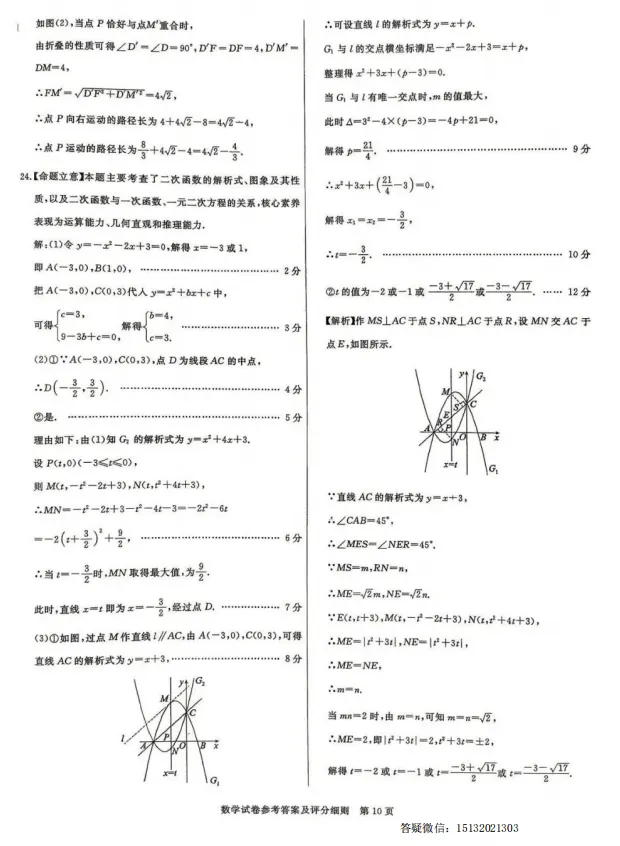 如图(2),当点 P 恰好与点M′重合时,
由折叠的性质可得∠D′=∠D=90°,D′F=DF=4,D′M′=
DM=4,
∴FM′=√(D′F²+D′M′²)=4√2,
∴点 P 向右运动的路径长为 4+4√2-8=4√2-4,
∴点 P 运动的路径长为 8/3+4√2-4=4√2-4/3.
24.【命题立意】本题主要考查了二次函数的解析式、图象及其性
质,以及二次函数与一次函数、一元二次方程的关系,核心素养
表现为运算能力、几何直观和推理能力.
解:(1)令 y=-x²-2x+3=0,解得 x=-3 或 1,
即 A(-3,0),B(1,0), ………… 2分
把 A(-3,0),C(0,3)代入 y=x²+bx+c 中,
可得{c=3, 9-3b+c=0, 解得{b=4, c=3. ………… 3分
(2)①∵A(-3,0),C(0,3),点 D 为线段 AC 的中点,
∴D(-3/2,3/2). ………… 4分
②是. ………… 5分
理由如下:由(1)知 G₂ 的解析式为 y=x²+4x+3.
设 P(t,0)(-3≤t≤0),
则 M(t,-t²-2t+3),N(t,t²+4t+3),
∴MN=-t²-2t+3-t²-4t-3=-2t²-6t
=-2(t+3/2)²+9/2, ………… 6分
∴当 t=-3/2时,MN 取得最大值,为9/2.
此时,直线 x=t 即为 x=-3/2,经过点 D. ………… 7分
(3)①如图,过点 M 作直线 l∥AC,由 A(-3,0),C(0,3),可得
直线 AC 的解析式为 y=x+3, ………… 8分
y
G₂
M
C
l
A
P
N
O
B
x
x=t
G₁
∴可设直线 l 的解析式为 y=x+p.
G₁ 与 l 的交点横坐标满足-x²-2x+3=x+p,
整理得 x²+3x+(p-3)=0.
当 G₁ 与 l 有唯一交点时,m 的值最大,
此时 Δ=3²-4×(p-3)=-4p+21=0,
解得 p=21/4. ………… 9分
∴x²+3x+(21/4-3)=0,
解得 x₁=x₂=-3/2,
∴t=-3/2. ………… 10分
②t 的值为-2 或-1 或 (-3+√17)/2 或 (-3-√17)/2. …… 12分
【解析】作 MS⊥AC 于点 S,NR⊥AC 于点 R,设 MN 交 AC 于
点 E,如图所示.
y
G₂
M
S
C
E
R
A
P
N
O
B
x
x=t
G₁
∵直线 AC 的解析式为 y=x+3,
∴∠CAB=45°,
∴∠MES=∠NER=45°.
∵MS=m,RN=n,
∴ME=√2m,NE=√2n.
∵E(t,t+3),M(t,-t²-2t+3),N(t,t²+4t+3),
∴ME=|t²+3t|,NE=|t²+3t|,
∴ME=NE,
∴m=n.
当 mn=2 时,由 m=n,可知 m=n=√2,
∴ME=2,即|t²+3t|=2,t²+3t=±2,
解得 t=-2 或 t=-1 或 t=(-3+√17)/2 或 t=(-3-√17)/2.
数学试卷参考答案及评分细则 第 10 页
答疑微信:15132021303